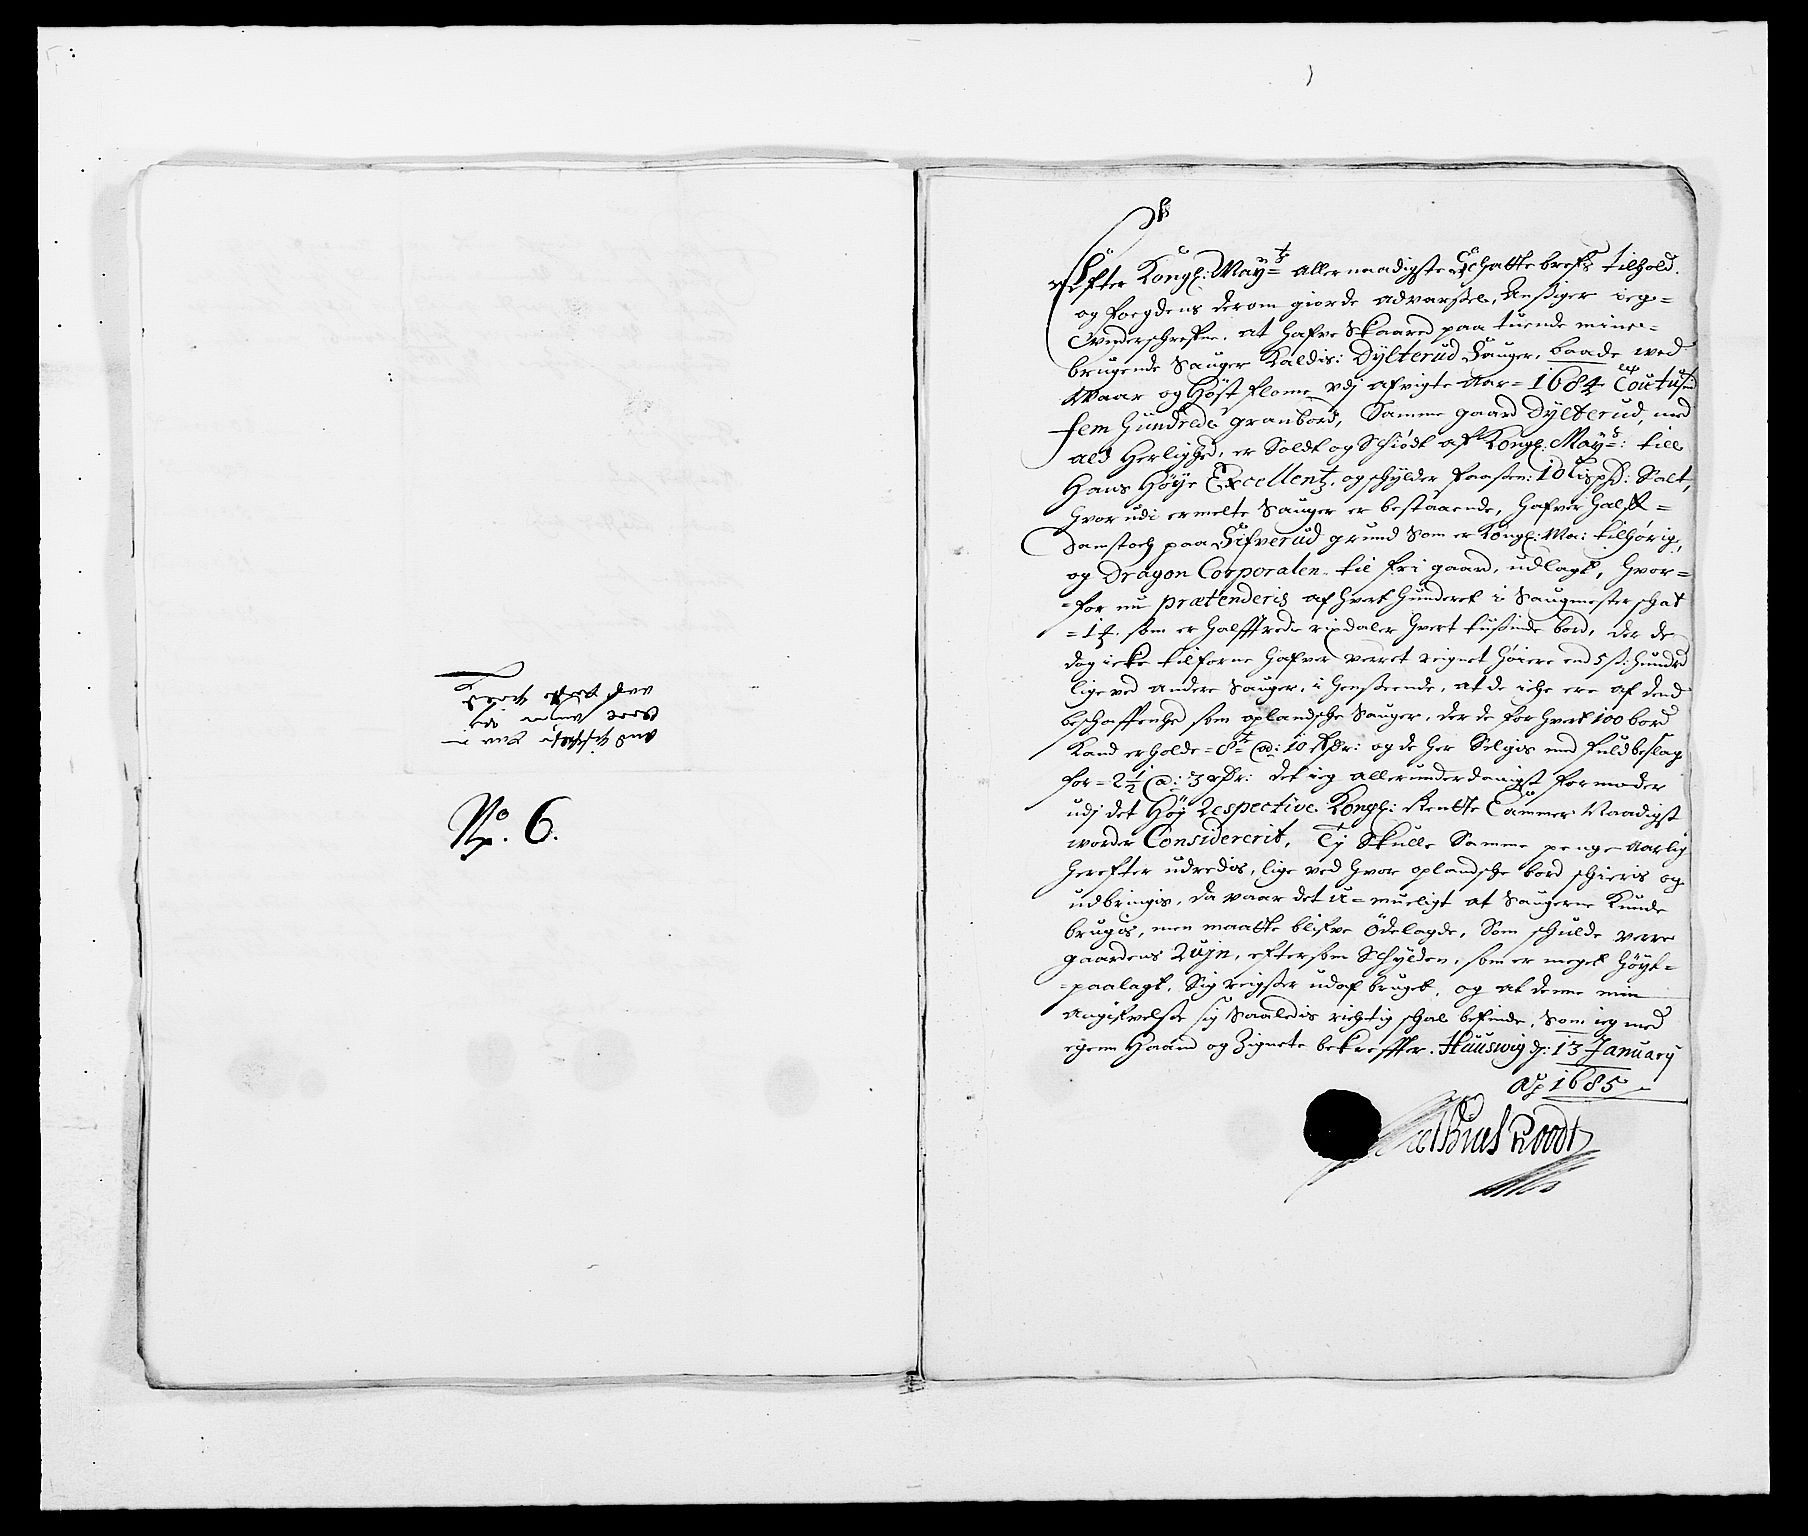 No. 6.
Efter Kongl: Mayts allernaadigste Schatte brefs tilhold
og foegdens derom giorde advarsel, Ansiger ieg
Underschrefne, at hafve Skaared paa tuende mine
brugende Sauger Kaldis: Dylterud Sauger, baade ved
Waar og Høst flome udj afvigte Aar 1684
fem hundrede granbord, Samme gaard Dylterud, med
ald Herlighed, er Soldt og Schiødt af Kongl. Mayt: till
Hans Høye Excellentz, og schylder 10 Lispd: Salt,
hvorudi ermelte Sauger er bestaaende, hafver halft
damstoch paa Sifverud grund Som er Kongl: Ma: tilhørig,
og Dragon Corporalen til fri gaard, udlagt, hvor=
=for nu prætenderis af hvert hunderet i Saugmesterschat
som er halfftrede rixdaler hvert tusinde bord, der de
dog icke tilforne hafver verret reignet høiere end 5 s: hundred
lige ved andre Sauger, i henseende, at de iche ere af dend
beschaffenhed som oplandsche Sauger, der de for hvert 100 bord
Kand erholde 8 a: 10 Rdr: og de her Selgis med fuldbeslag
for 2½ a: 3 Rdr: det ieg allerunderdanigst formoder
udj det Høy Respective Kongl: Rentte Cammer Naadigst
worder Considererit, Ty Skulle Samme penge Aarlig
herefter udredis, lige ved hvor oplandsche bord schieris og
udbringis, da vaar det u=mueligt at Saugerne Kunde
brugis, men maatte blifve Ødelagde, Som schulde verre
gaardens Ruin, eftersom Schylden, som er meget høyt
=paalagt, Sig reigser udaf bruget, og at denne min
Angifvelse sig Saaledis richtig schal befinde, Som ieg med
egen Haand og Zignete bekreffter. Hauswig d: 13 January
Ao 1685